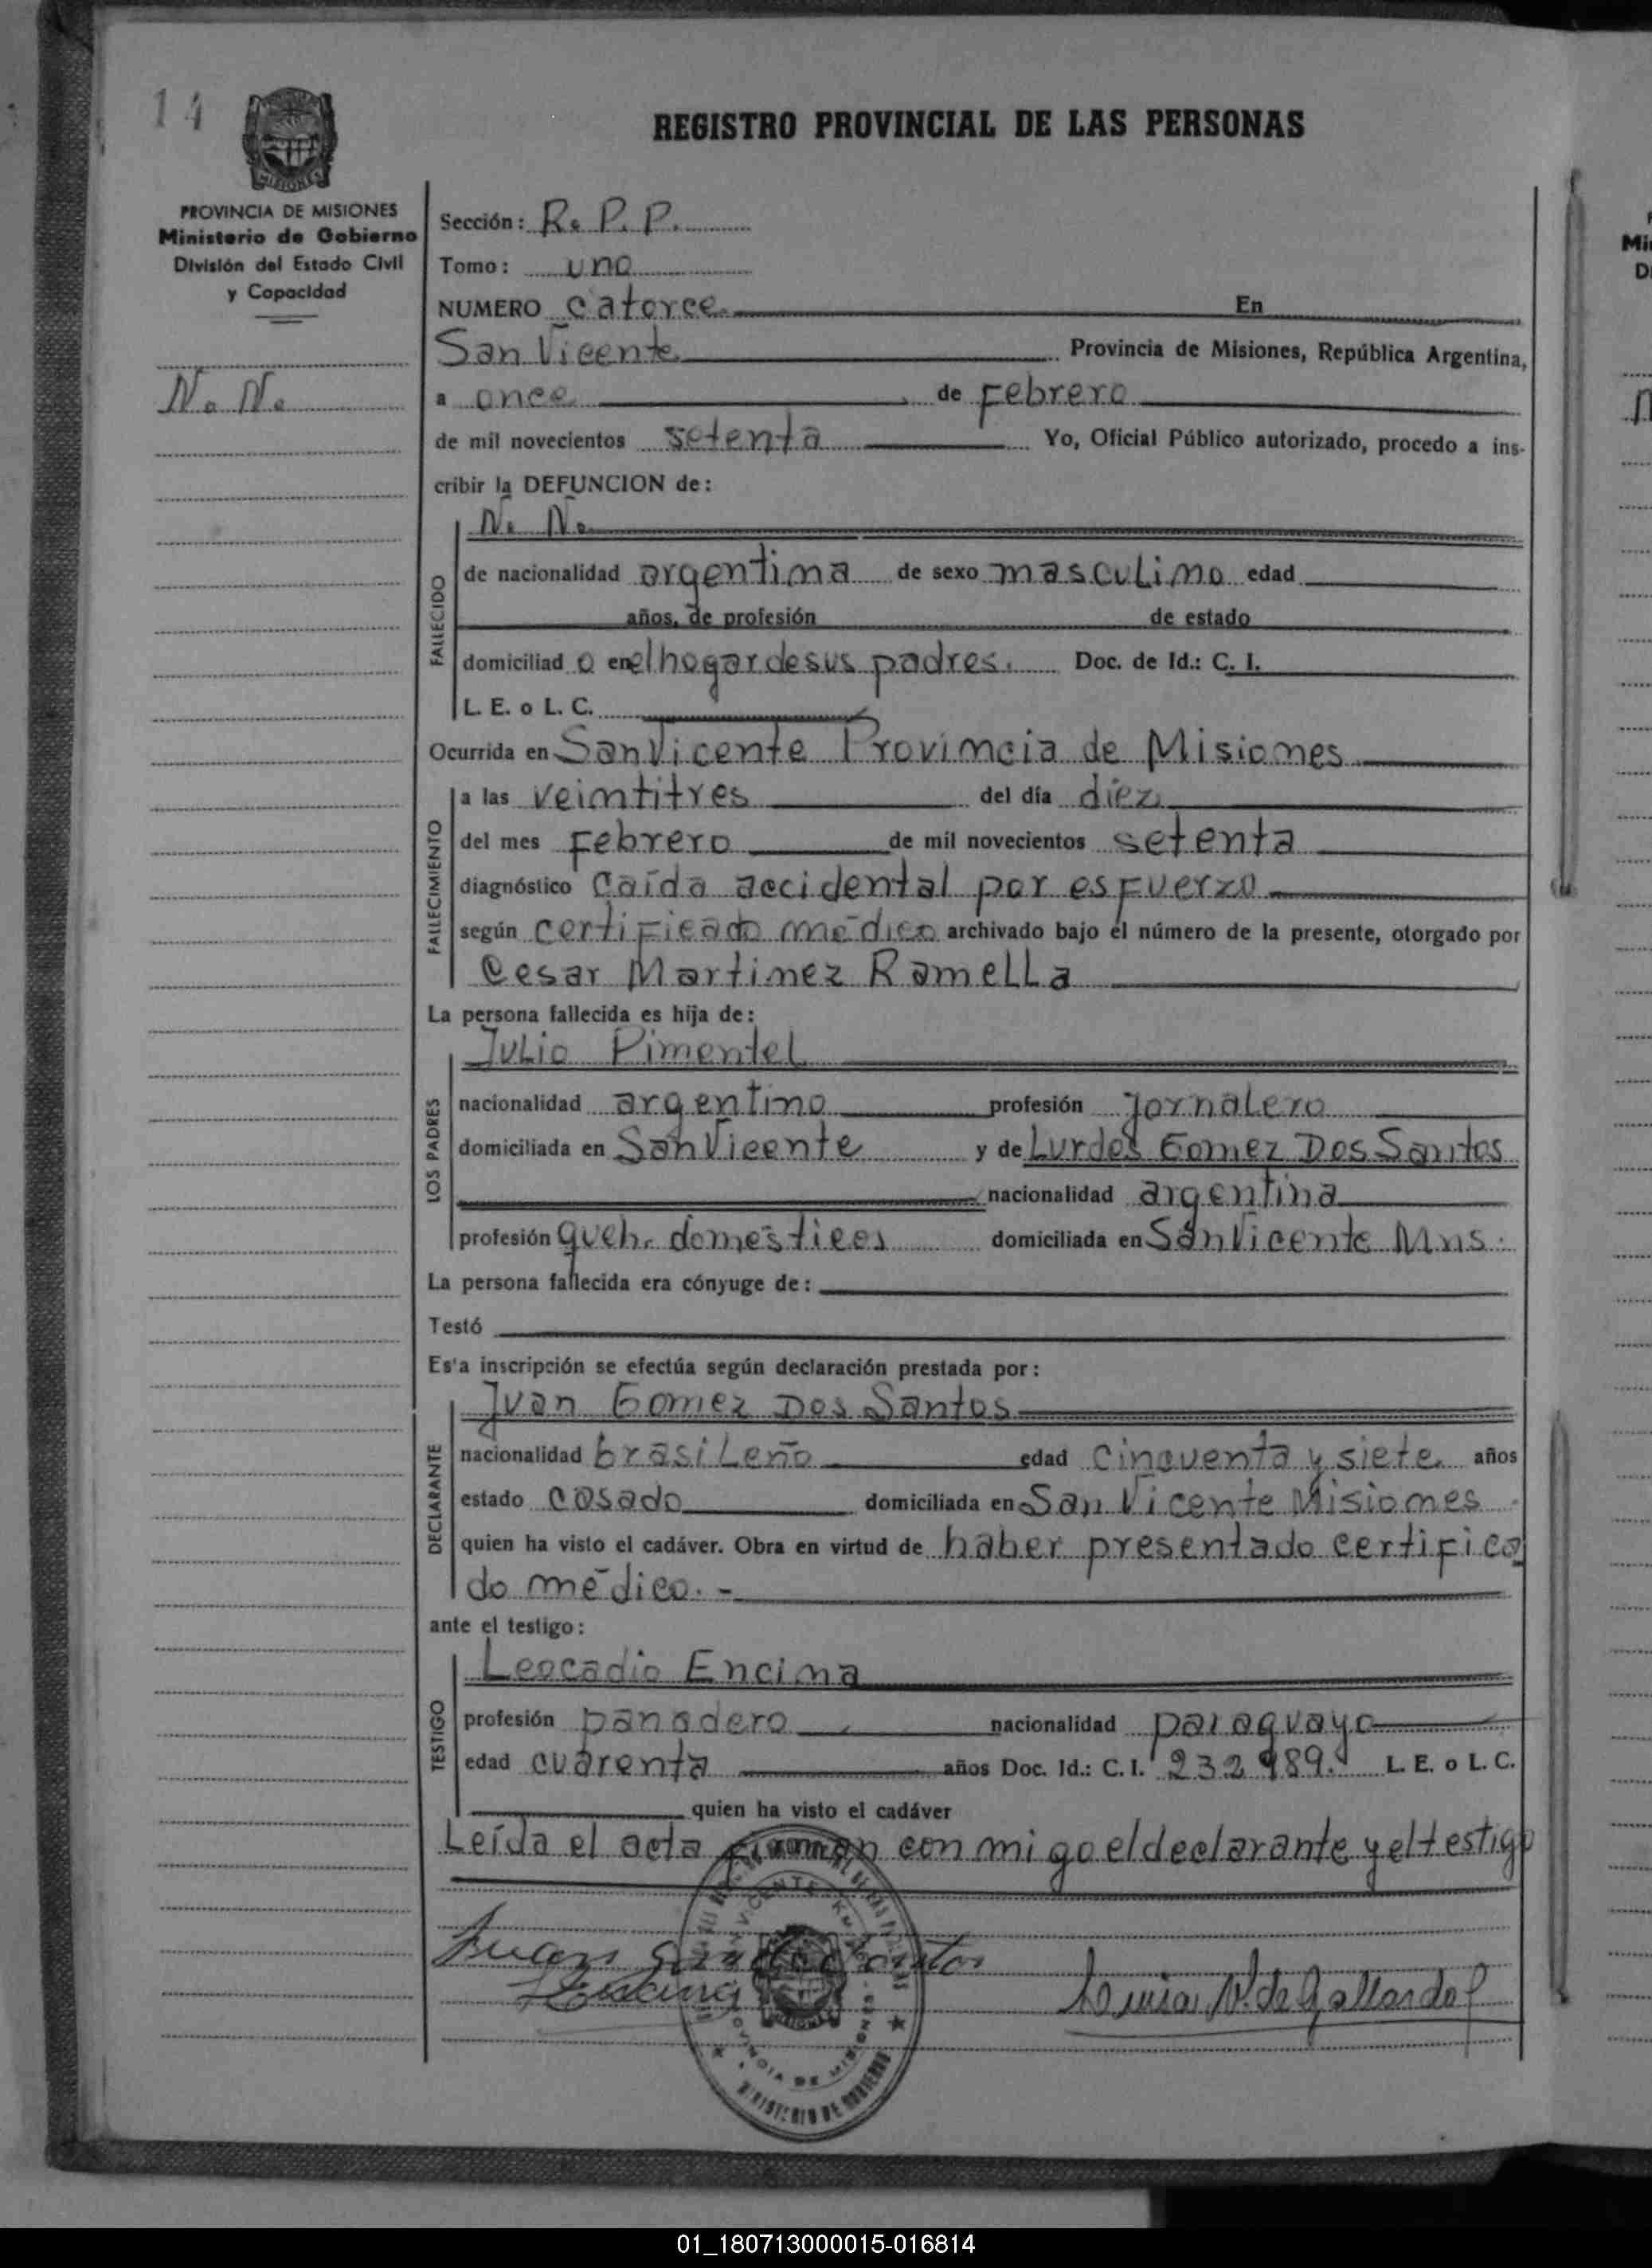 14
REGISTRO PROVINCIAL DE LAS PERSONAS
MISIONES
PROVINCIA DE MISIONES
Ministerio de Gobierno
División del Estado Civil
y Capacidad
N. N.
Sección: R. P. P.
Tomo: uno
NUMERO catorce En
San Vicente Provincia de Misiones, República Argentina,
a once de Febrero
de mil novecientos setenta Yo, Oficial Público autorizado, procedo a ins-
cribir la DEFUNCION de:
N. N.
FALLECIDO
de nacionalidad argentina de sexo masculino edad
años, de profesión de estado
domiciliad o en el hogar de sus padres. Doc. de Id.: C. I.
L. E. o L. C.
Ocurrida en San Vicente Provincia de Misiones
FALLECIMIENTO
a las veintitres del día diez
del mes Febrero de mil novecientos setenta
diagnóstico caída accidental por esfuerzo
según certificado médico archivado bajo el número de la presente, otorgado por
Cesar Martinez Ramella
La persona fallecida es hija de:
LOS PADRES
Julio Pimentel
nacionalidad argentino profesión jornalero
domiciliada en San Vicente y de Lurdes Gomez Dos Santos
nacionalidad argentina
profesión queh. domésticos domiciliada en San Vicente Mns.
La persona fallecida era cónyuge de:
Testó
Es'a inscripción se efectúa según declaración prestada por:
DECLARANTE
Juan Gomez Dos Santos
nacionalidad brasileño edad cincuenta y siete años
estado casado domiciliada en San Vicente Misiones
quien ha visto el cadáver. Obra en virtud de haber presentado certifica
do médico. -
ante el testigo:
TESTIGO
Leocadio Encina
profesión panadero nacionalidad paraguayo
edad cuarenta años Doc. Id.: C. I. 232989. L. E. o L. C.
quien ha visto el cadáver
Leída el acta firman con migo el declarante y el testigo
Juan Santos
Encina
N. de Gallardo
VICENTE
PROVINCIA DE MISIONES
MINISTERIO DE GOBIERNO
01_180713000015-016814